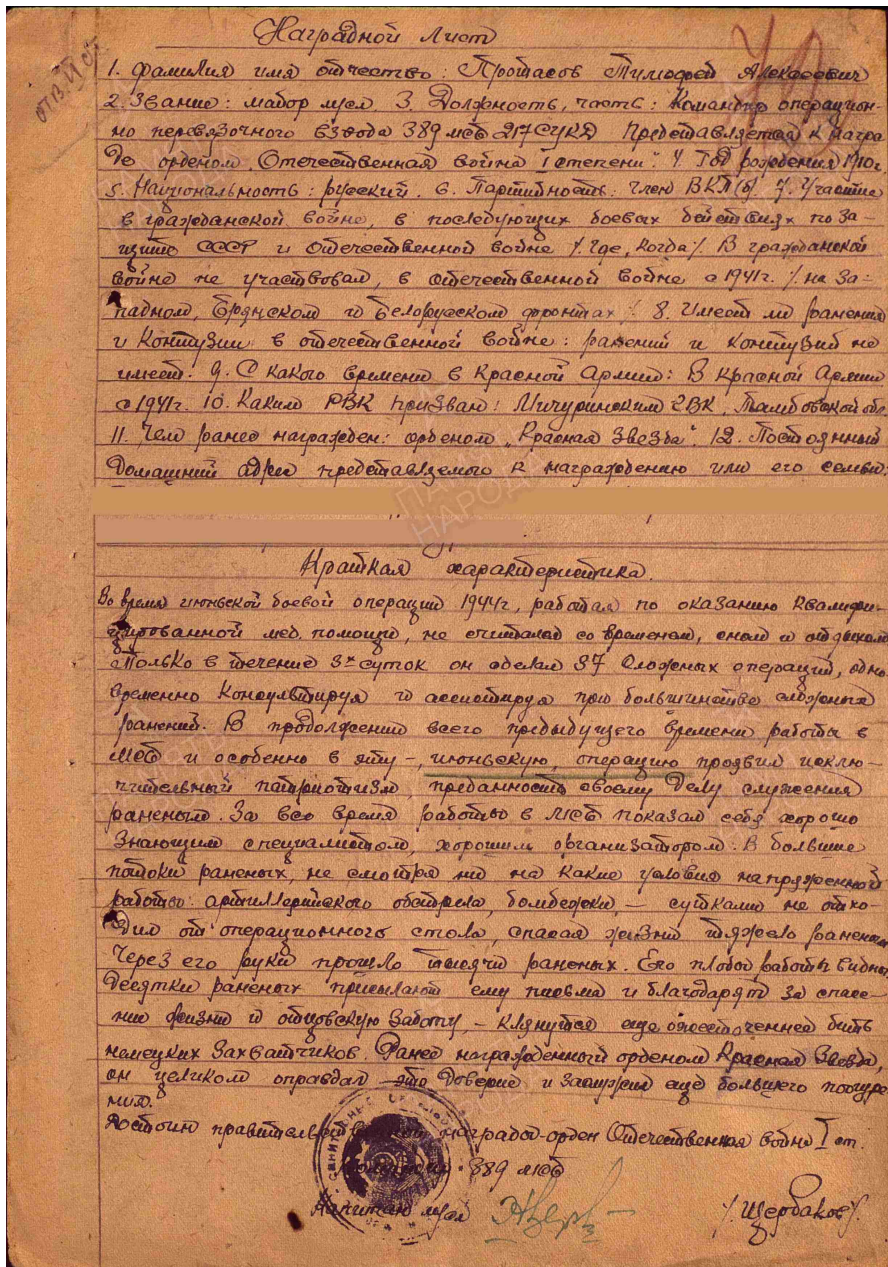 Наградной Лист
отв. II ст.
1. Фамилия имя отчество: Протасов Тимофей Алексеевич
2. Звание: майор м/сл 3. Должность, часть: Командир операцион-
но перевязочного взвода 389 мсб 217 СУКД Представляется к награ
де орденом „Отечественная война I степени". 4. Год рождения 1910г.
5. Национальность: русский. 6. Партийность: член ВКП(б) 7. Участие
в гражданской войне, в последующих боевых действиях по за-
щите СССР и отечественной войне /. Где, когда /. В гражданской
войне не участвовал, в отечественной войне с 1941г. / на За-
падном, Брянском и Белорусском фронтах /. 8. Имеет ли ранения
и контузии в отечественной войне: ранений и контузий не
имеет. 9. С какого времени в Красной Армии: В Красной Армии
с 1941г. 10. Каким РВК призван: Мичуринским ГВК, Тамбовской обл.
11. Чем ранее награжден: орденом „Красная Звезда". 12. Постоянный
домашний адрес представляемого к награждению или его семьи:
Краткая характеристика.
Во время июньской боевой операции 1944г, работая по оказанию квалифи-
цированной мед. помощи, не считался со временем, сном и отдыхом
только в течение 3х суток он сделал 37 сложных операций, одно
временно консультируя и ассистируя при большинстве сложных
ранений. В продолжении всего предыдущего времени работы в
мсб и особенно в эту -, июньскую, операцию проявил исклю-
чительный патриотизм, преданность своему делу служения
раненым. За все время работы в мсб показал себя хорошо
знающим специалистом, хорошим организатором. В большие
потоки раненых, не смотря ни на какие условия напряженной
работы: артиллерийского обстрела, бомбежки, - сутками не отхо-
дил от операционного стола, спасая жизни тяжело раненым
Через его руки прошло тысячи раненых. Его плоды работы видны
Десятки раненых присылают ему письма и благодарят за спасе-
ние жизни и отцовскую заботу, - клянутся еще ожесточенней бить
немецких захватчиков. Ранее награжденный орденом Красная Звезда,
он целиком оправдал это доверие и заслужил еще большего поощре
ния.
Достоин правительственной награды - орден Отечественная война I ст.
389 мсб
Капитан м/сл /. Щербаков /.